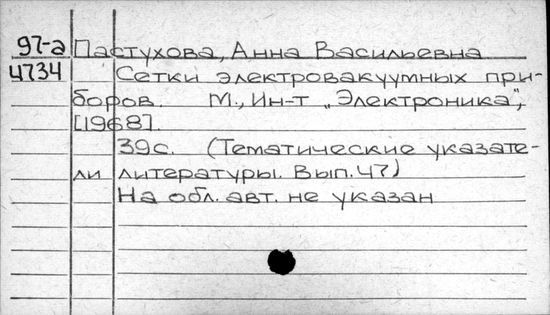 97-а Пастухова, Анна Васильевна
4734 Сетки электровакуумных при-
боров. М., Ин-т „Электроника",
[1968].
39с. (Тематические указате-
ли литературы. Вып. 47)
На обл. авт. не указан